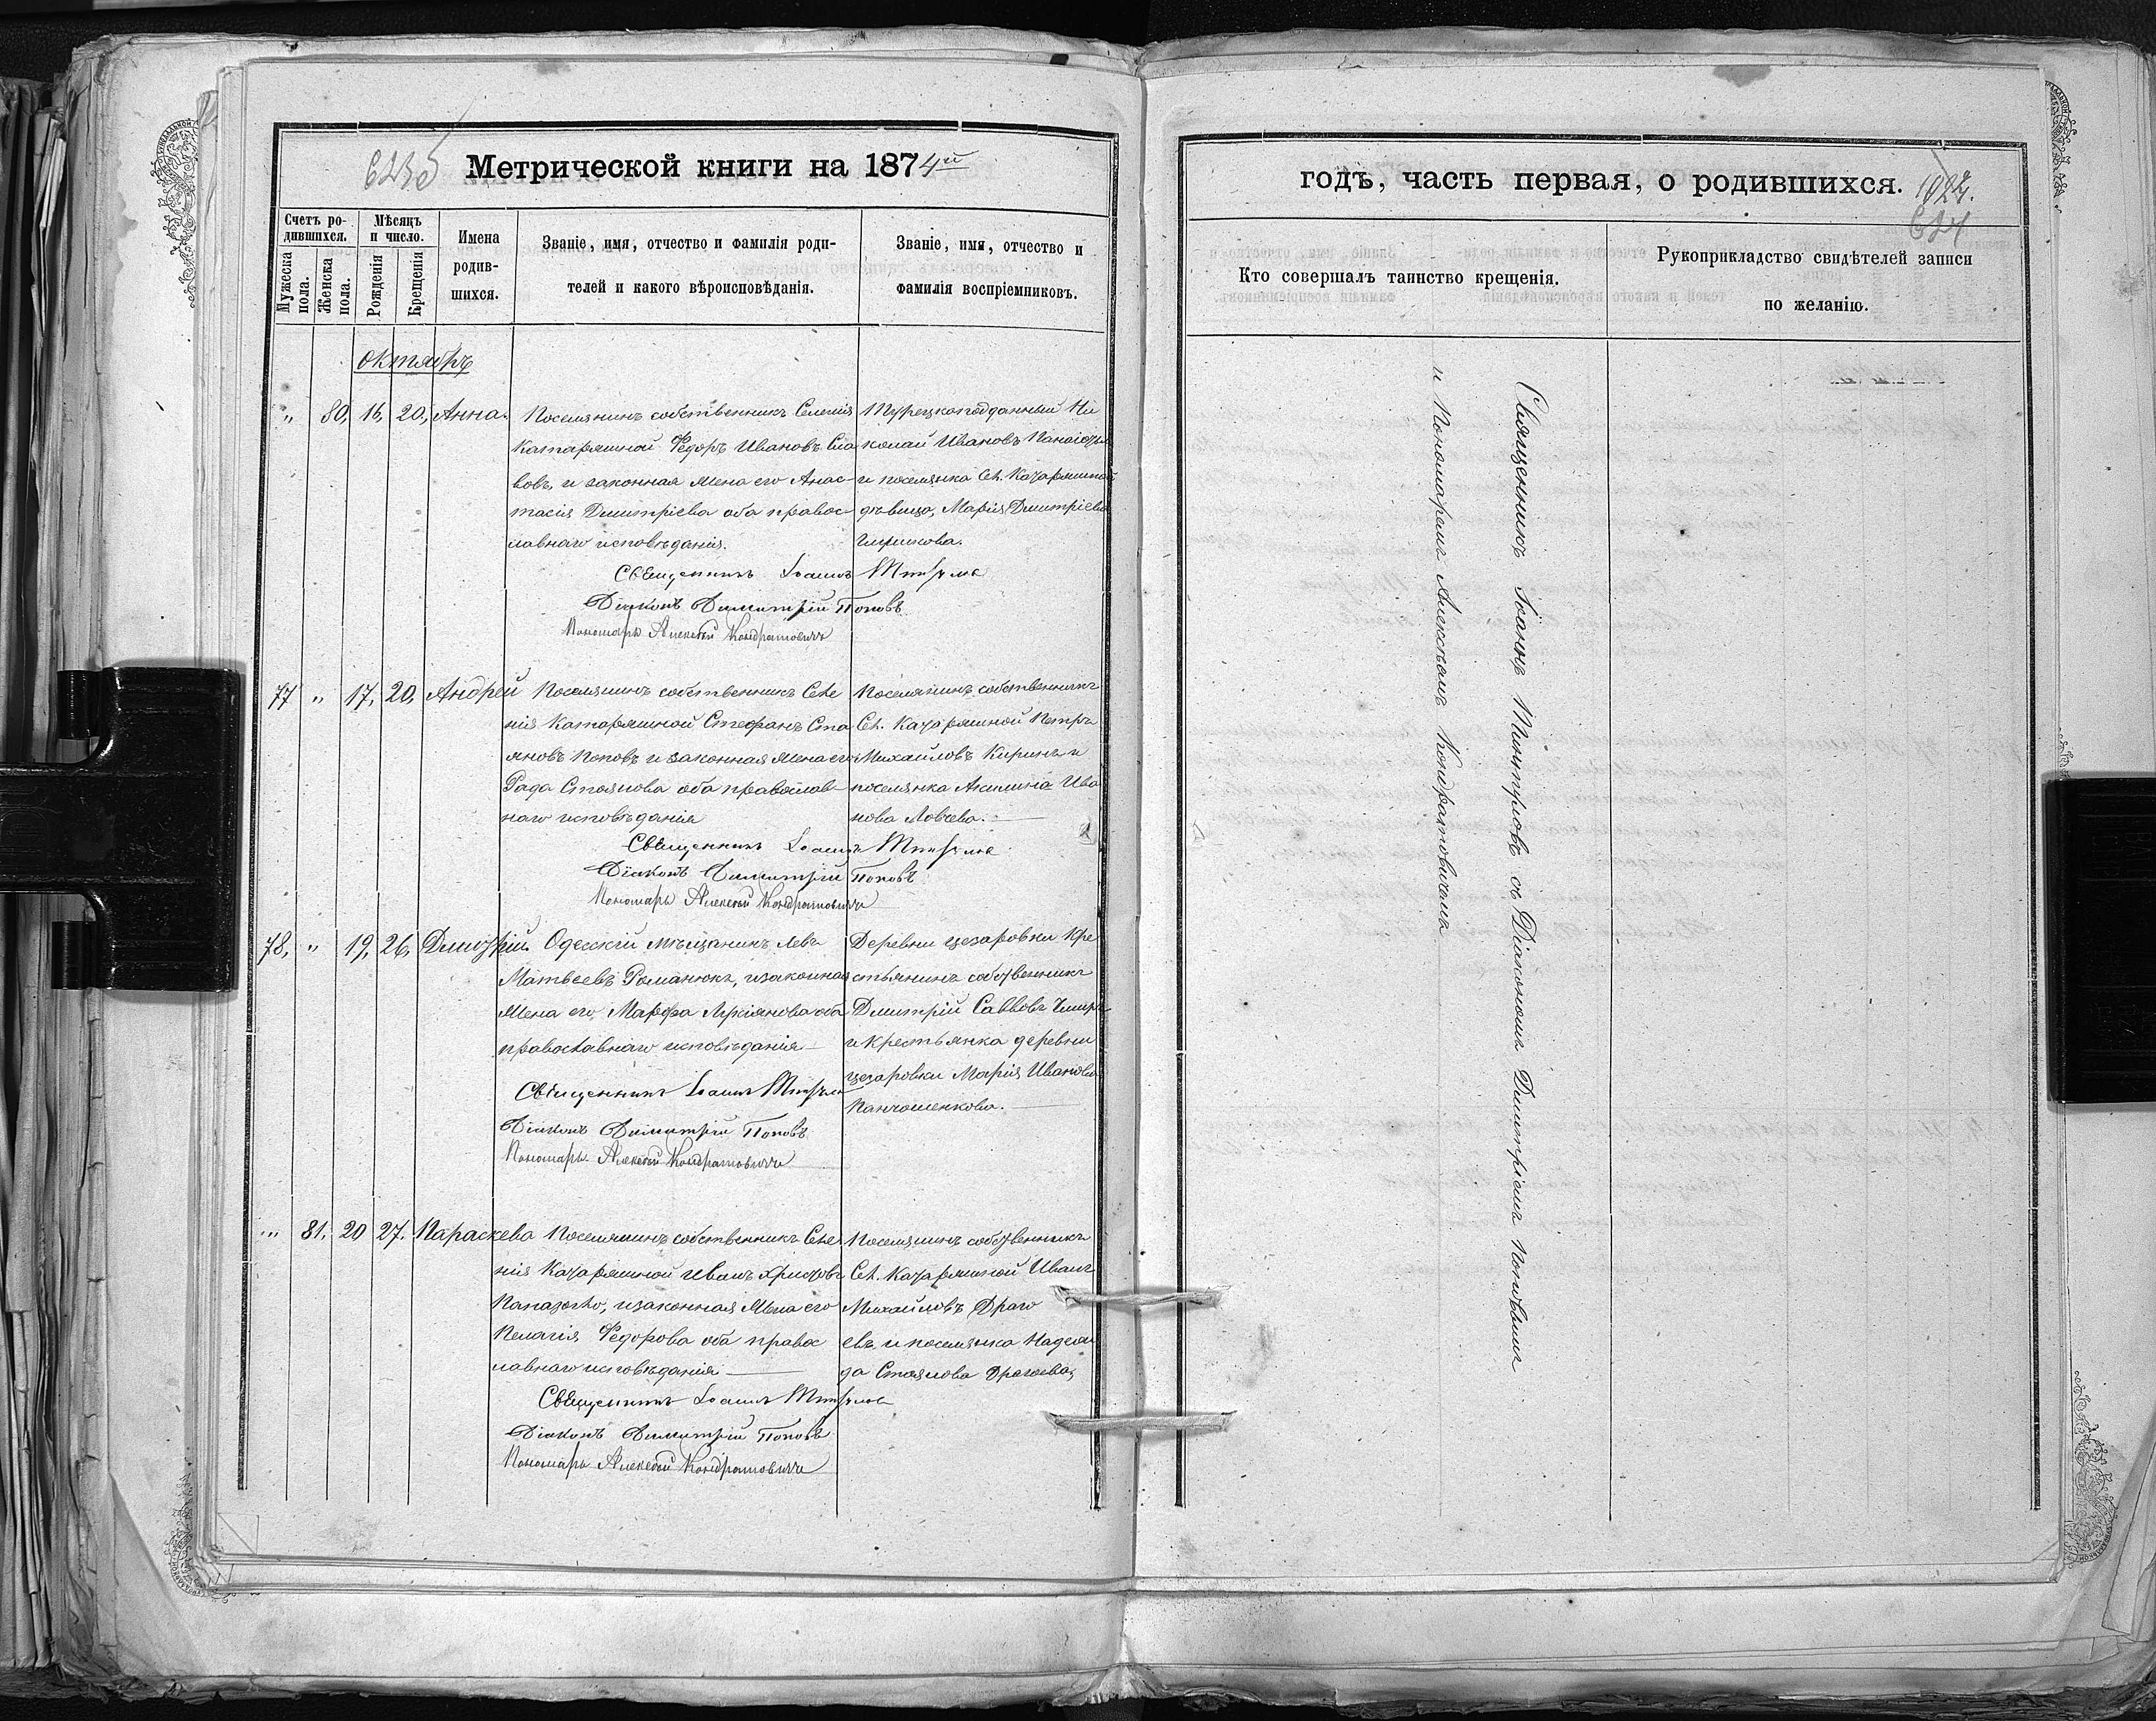 623 об
Метрической книги на 1874й
Счетъ ро-
дившихся.
Мѣсяцъ
и число.
Мужеска
пола.
Женска
пола.
Рожденія
Крещенія
Имена
родив-
шихся.
Званіе, имя, отчество и фамилія роди-
телей и какого вѣроисповѣданія.
Званіе, имя, отчество и
фамилія воспріемниковъ.
октябрь
„ 80, 16, 20, Анна.
Поселянинъ собственникъ Селенія
Катаржиной Федоръ Ивановъ Сла
вовъ, и законная жена его Анас-
тасія Дмитріева оба правос-
лавнаго исповѣданія.
Турецкоподданный Ни
колай Ивановъ
и поселянка Сел. Катаржиной
дѣвица, Марія Дмитріева
Священникъ Іоаннъ
Діаконъ Димитрій Поповъ
Пономарь Алексѣй Кондратовичъ
77 „ 17, 20, Андрей
Поселянинъ собственникъ Селе
нія Катаржиной Стефанъ Сто
яновъ Поповъ и законная жена его
Рада Стоянова оба православ-
наго исповѣданія
Поселянинъ собственникъ
Сел. Катаржиной Петръ
Михайловъ и
поселянка Ива
нова Ловчева.
Священникъ Іоаннъ
Діаконъ Димитрій Поповъ
Пономарь Алексѣй Кондратовичъ
78, „ 19, 26, Дмитрій.
Одесскій мѣщанинъ Левъ
Матвеевъ Романюкъ, и законная
жена его, Марфа Лукіянова оба
православнаго исповѣданія
Деревни Цезаровки Кре
стьянинъ собственникъ
Дмитрій Саввовъ
и крестьянка деревни
Цезаровки Марія Иванова
Священникъ Іоаннъ
Діаконъ Димитрій Поповъ
Пономарь Алексѣй Кондратовичъ
„ 81, 20 27. Параскева
Поселянинъ собственникъ Селе
нія Катаржиной Иванъ Христовъ
и законная жена его
Пелагія Федорова оба правос
лавнаго исповѣданія
Поселянинъ собственникъ
Сел. Катаржиной Иванъ
Михайловъ Драго
евъ и поселянка Надеж
да Стоянова Драгоева,
Священникъ Іоаннъ
Діаконъ Димитрій Поповъ
Пономарь Алексѣй Кондратовичъ
годъ, часть первая, о родившихся.
624
Кто совершалъ таинство крещенія.
Рукоприкладство свидѣтелей записи
по желанію.
Священникъ Іоаннъ съ Діакономъ Дмитріемъ Поповымъ
и Пономаремъ Алексѣемъ Кондратовичемъ